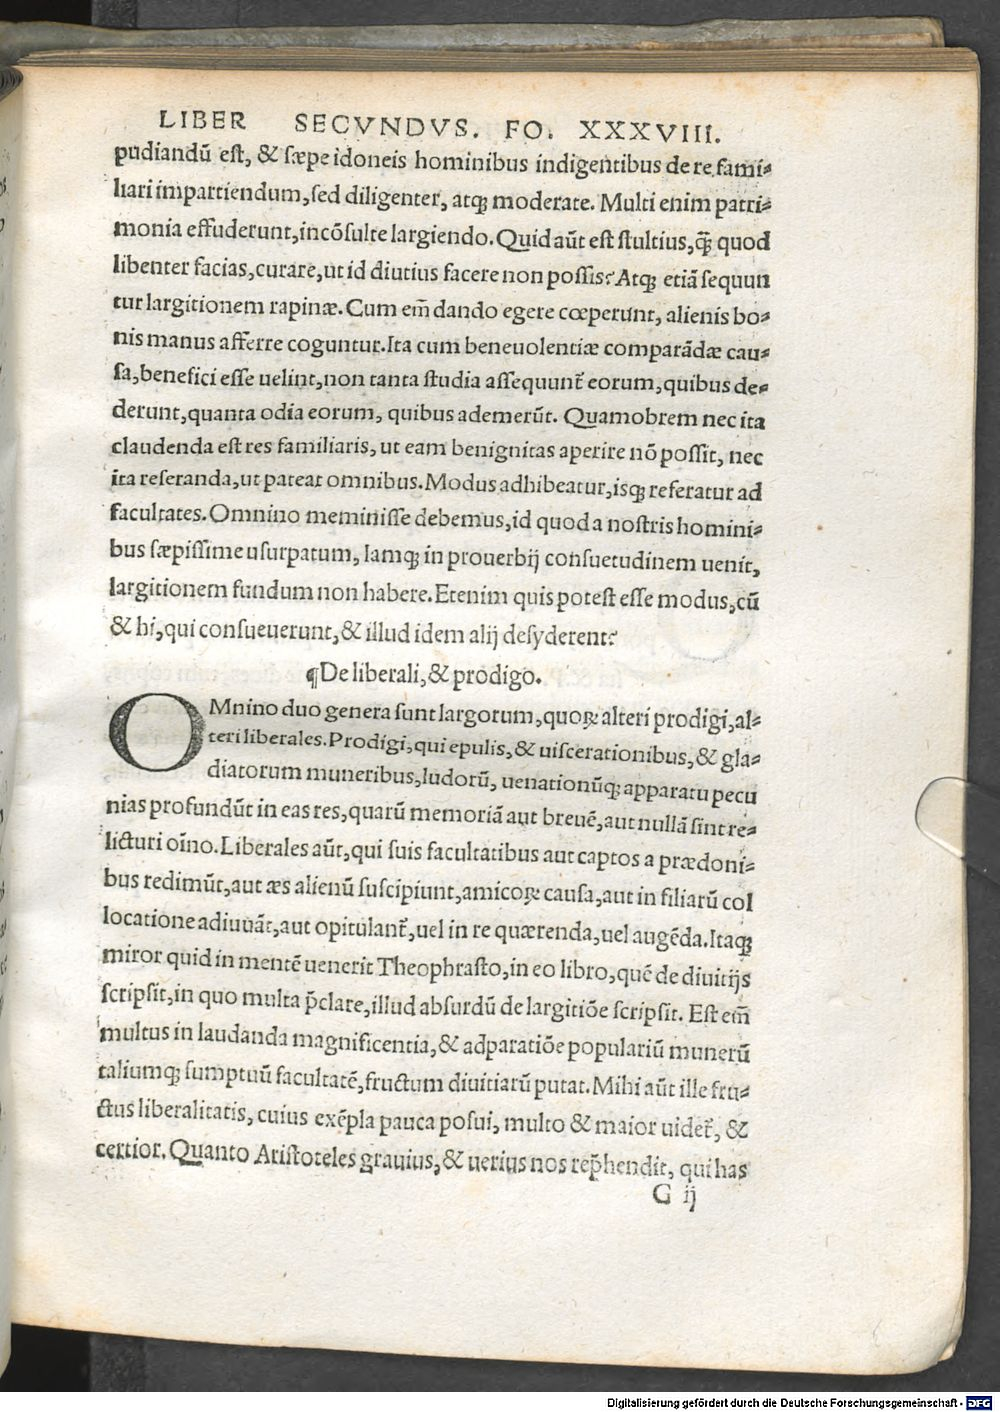 LIBER SECVNDVS. FO. XXXVIII.
pudiandū est, & sæpe idoneis hominibus indigentibus de re fami⸗
liari impartiendum, sed diligenter, atq; moderate. Multi enim patri⸗
monia effuderunt, incōsulte largiendo. Quid aūt est stultius, q̃ quod
libenter facias, curare, ut id diutius facere non possis? Atq; etiā sequun
tur largitionem rapinæ. Cum em̄ dando egere cœperunt, alienis bo⸗
nis manus afferre coguntur. Ita cum beneuolentiæ comparādæ cau⸗
sa, benefici esse uelint, non tanta studia assequunt̃ eorum, quibus de⸗
derunt, quanta odia eorum, quibus ademerūt. Quamobrem nec ita
claudenda est res familiaris, ut eam benignitas aperire nō possit, nec
ita reseranda, ut pateat omnibus. Modus adhibeatur, isq; referatur ad
facultates. Omnino meminisse debemus, id quod a nostris homini⸗
bus sæpissime usurpatum, Iamq; in prouerbij consuetudinem uenit,
largitionem fundum non habere. Etenim quis potest esse modus, cū
& hi, qui consueuerunt, & illud idem alij desyderent?
¶De liberali, & prodigo.
OMnino duo genera sunt largorum, quoꝝ alteri prodigi, al⸗
teri liberales. Prodigi, qui epulis, & uiscerationibus, & gla⸗
diatorum muneribus, ludorū, uenationūq; apparatu pecu
nias profundūt in eas res, quarū memoriā aut breuē, aut nullā sint re⸗
licturi oīno. Liberales aūt, qui suis facultatibus aut captos a prædoni⸗
bus redimūt, aut æs alienū suscipiunt, amicoꝝ causa, aut in filiarū col
locatione adiuuāt, aut opitulant̃, uel in re quærenda, uel augēda. Itaq;
miror quid in mentē uenerit Theophrasto, in eo libro, quē de diuitijs
scripsit, in quo multa p̄clare, illud absurdū de largitiōe scripsit. Est em̄
multus in laudanda magnificentia, & adparatiōe populariū munerū
taliumq; sumptuū facultatē, fructum diuitiarū putat. Mihi aūt ille fru⸗
ctus liberalitatis, cuius exēpla pauca posui, multo & maior uidet̃, &
certior. Quanto Aristoteles grauius, & uerius nos rep̄hendit, qui has
G ij
Digitalisierung gefördert durch die Deutsche Forschungsgemeinschaft - DFG